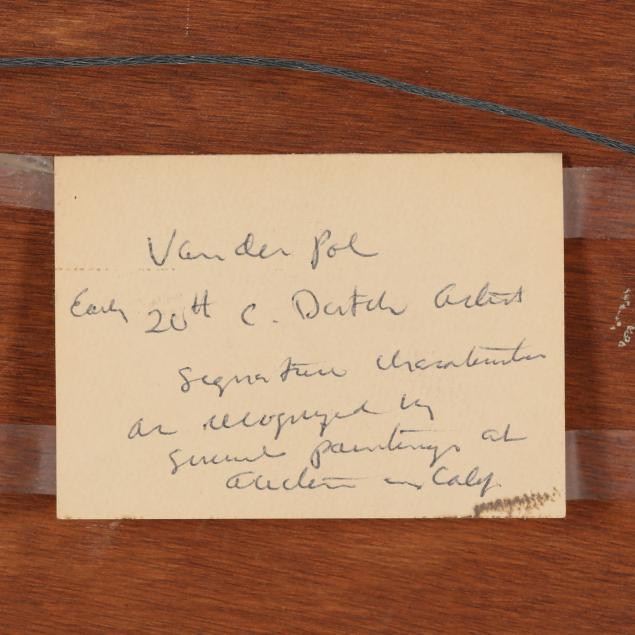 Van der Pol
Early 20th C. Dutch Artist
signature characteristics
as recognized by
several paintings at
auction in Calif.